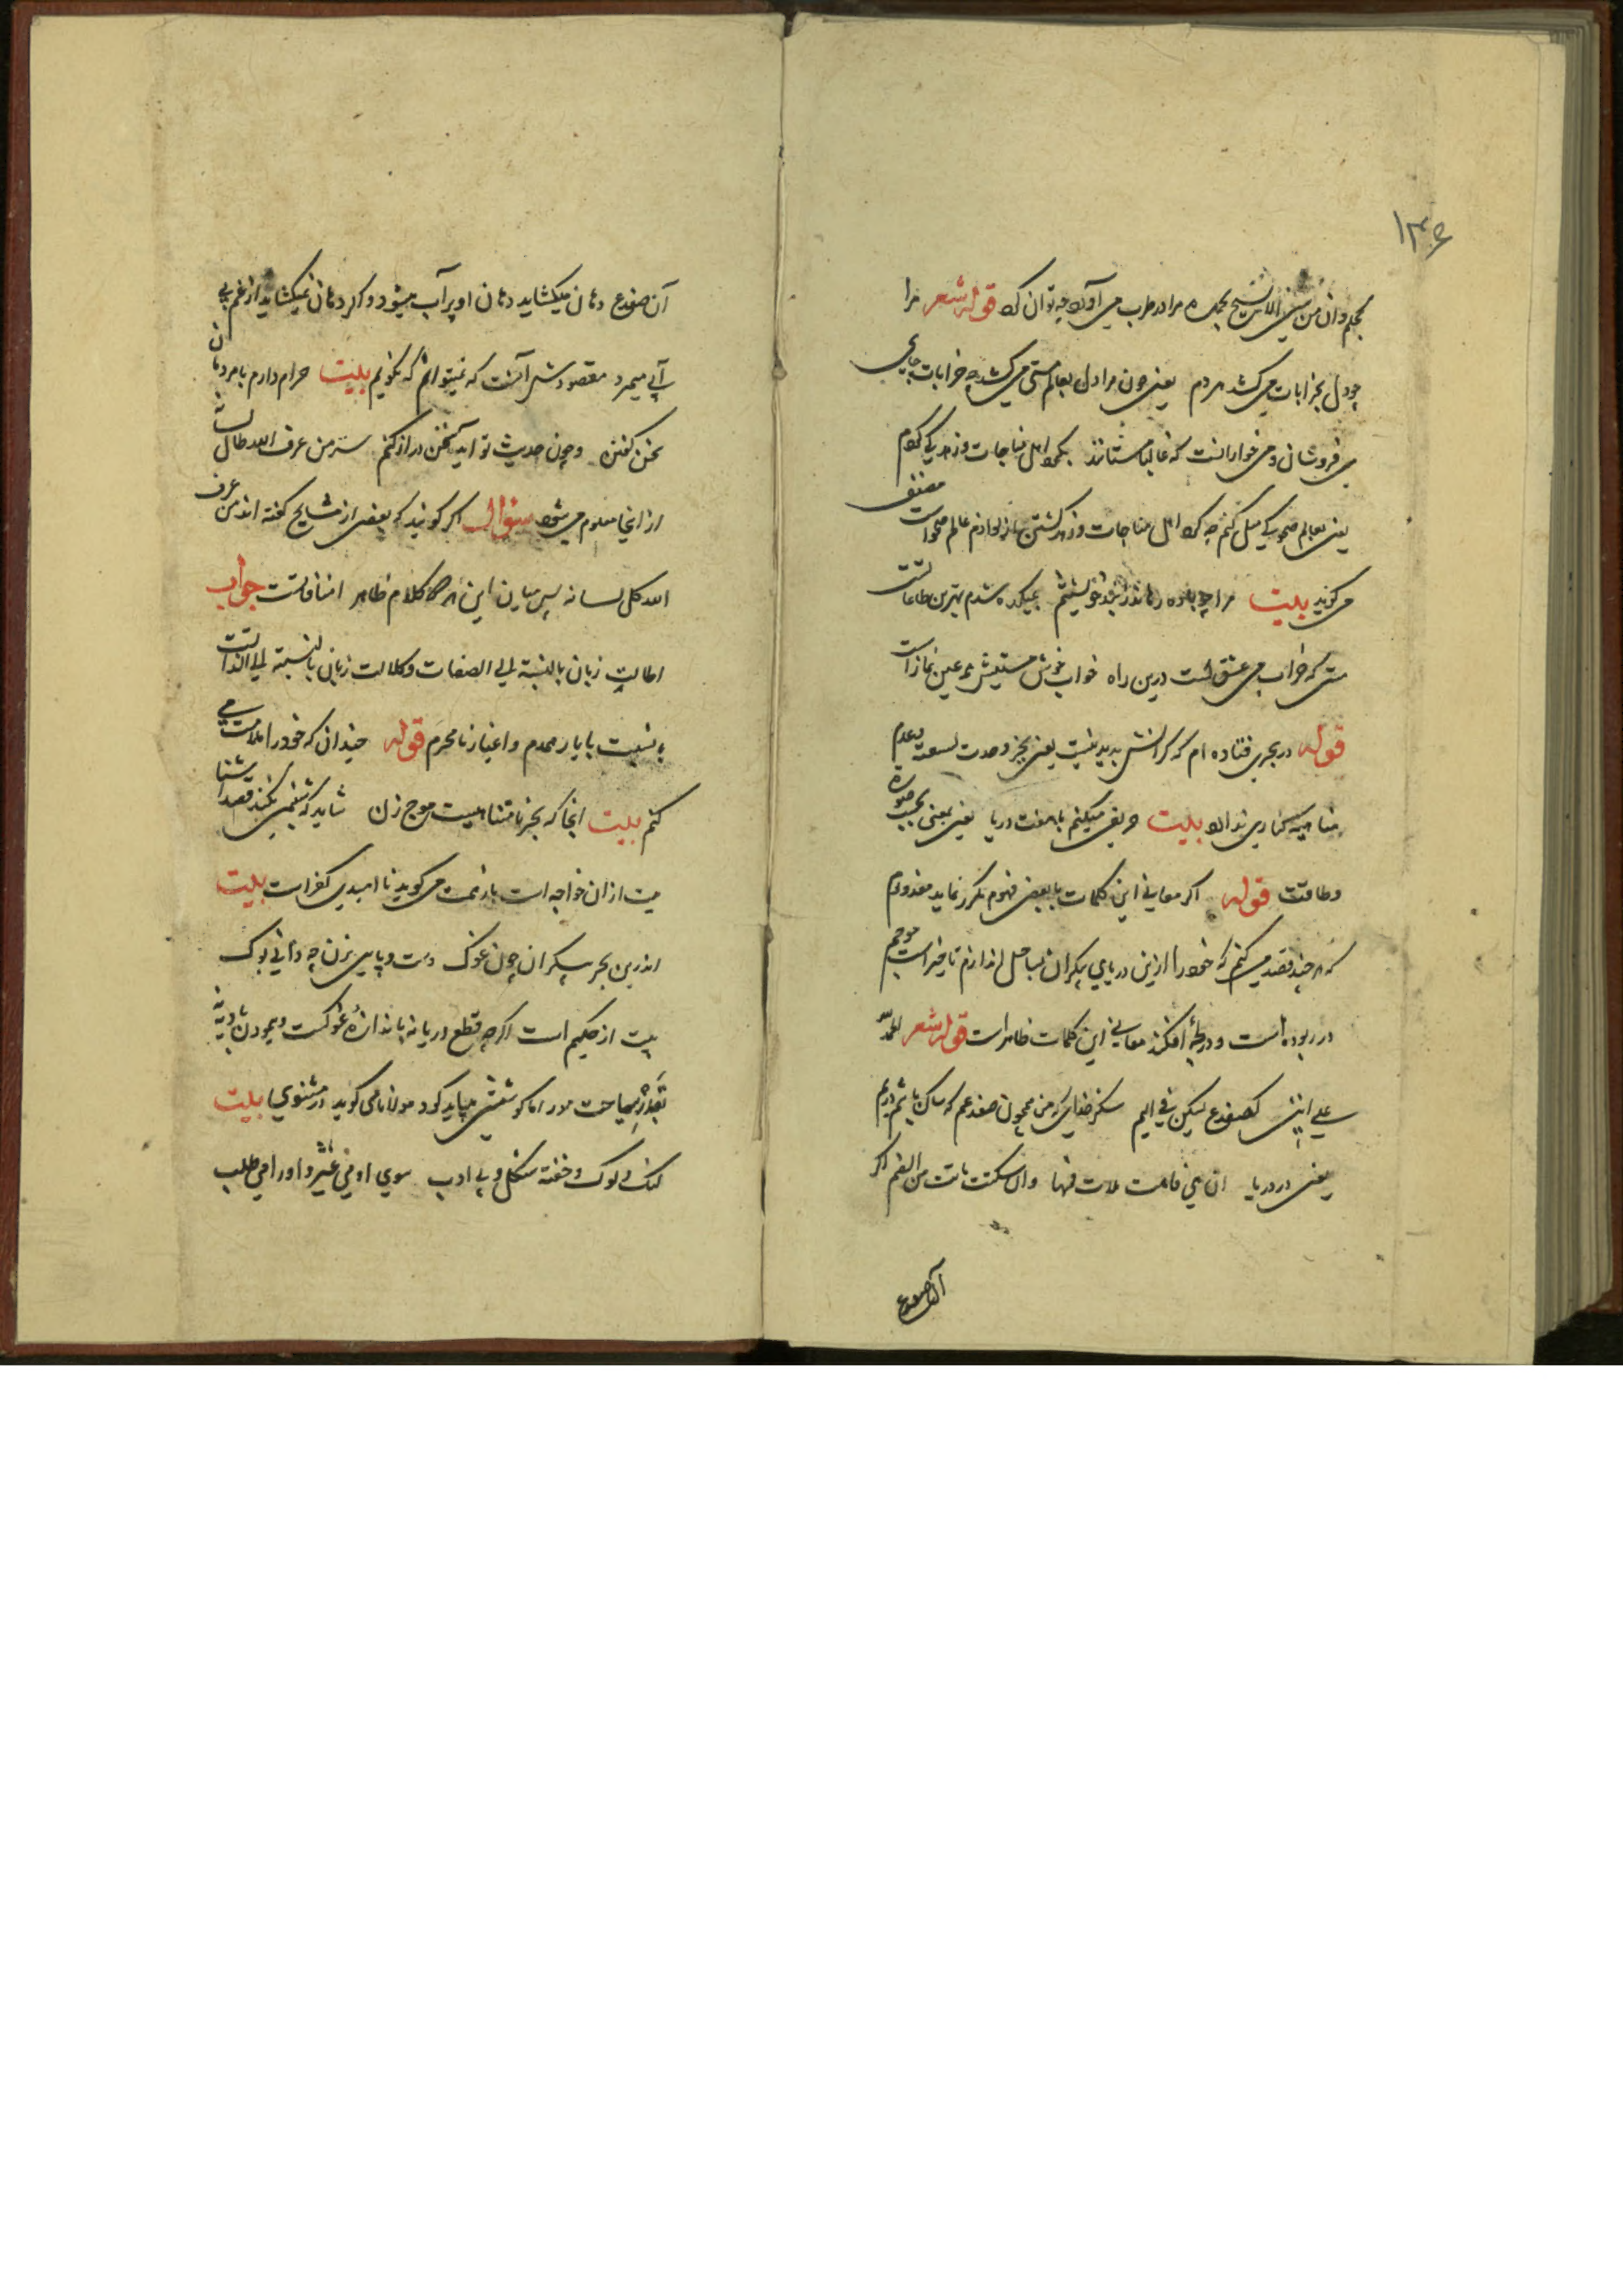 ۱۳۶
بحکم وان من شیٔ الا یسبح بحمده مرا در طرب می آورد چه توان کرد قوله شعر مرا
چو دل بخرابات می کشد هر دم یعنی چون مرا دل بعالم مستی می کشد چه خرابات جای
می فروشان و می خوارانست که غالبا مستانند بگرد اهل مناجات و زهد کی گردم
یعنی بعالم صحو کی میل کنم چه گرد اهل مناجات و زهد گشتن از لوازم عالم صحو است مصنف
می گوید بیت مرا چو باده رهاند ز بند خویشتنم بمیکده شدم بهترین طاعاتست
مستی که خراب می عشق است درین راه خواب خوش مستیش همه عین نماز است
قوله در بحری فتاده ام که کرانش پدید نیست یعنی بحر وحدت لسعت وعدم
متناهیه کناری ندارد بیت حریفی میکنم با هفت دریا یعنی بمعنی بحسب صورة
وطاقت قوله اگر معانی این کلمات با بعض فهوم مکرر نماید معذورم
که هر چند قصد می کنم که خود را ازین دریای بیکران بساحل اندازم تا خبر است موجم
در ربوده است و در لجهٔ افکند معانی این کلمات ظاهر است قوله شعر الحمد لله
علی اننی کضفدع یسکن فی الیم شکر خدای که من همچون ضفدعم که ساکن باشم در یم
یعنی در دریا ان هی فاهت ملات فمها وان سکتت ماتت من الغم اگر
آن ضفدع
آن ضفدع دهان میکشاید دهان او پر آب میشود و اگر دهان نمیکشاید از غم بی
آبی میمرد مقصودش آنست که نمیتوانم که نگویم بیت حرام دارم با مردمان
سخن گفتن و چون حدیث تو آید سخن دراز کنم سر من عرف الله طال لسانه
از اینجا معلوم می شود سؤال اگر گویند که بعضی از مشایخ گفته اند من عرف
الله کل لسانه پس میان این هر دو کلام ظاهر منافاتست جواب
اطالت زبان بالنسبة الی الصفات و کلالت زبان بالنسبة الی الذاتست
یا نسبت با یار محرم و اغیار نامحرم قوله چندان که خود را ملامت می
کنم بیت انجا که بحر نامتناهیست موج زن شاید که شبنمی نکند قصد آشنا
بیت از ان خواجه است باز همت می گوید نا امیدی کفر است بیت
اندرین بحر بیکران چون غوک دست و پایی بزن چه دانی بوک
بیت از حکیم است اگرچه قطع دریا نه باندازهٔ غوکست و پیمودن بادیه
بقدر سیاحت مور اما کوششی بباید کرد مولانا می گوید در مثنوی بیت
لنگ و لوک و خفته شکل و بی ادب سوی او می غیژ و او را می طلب